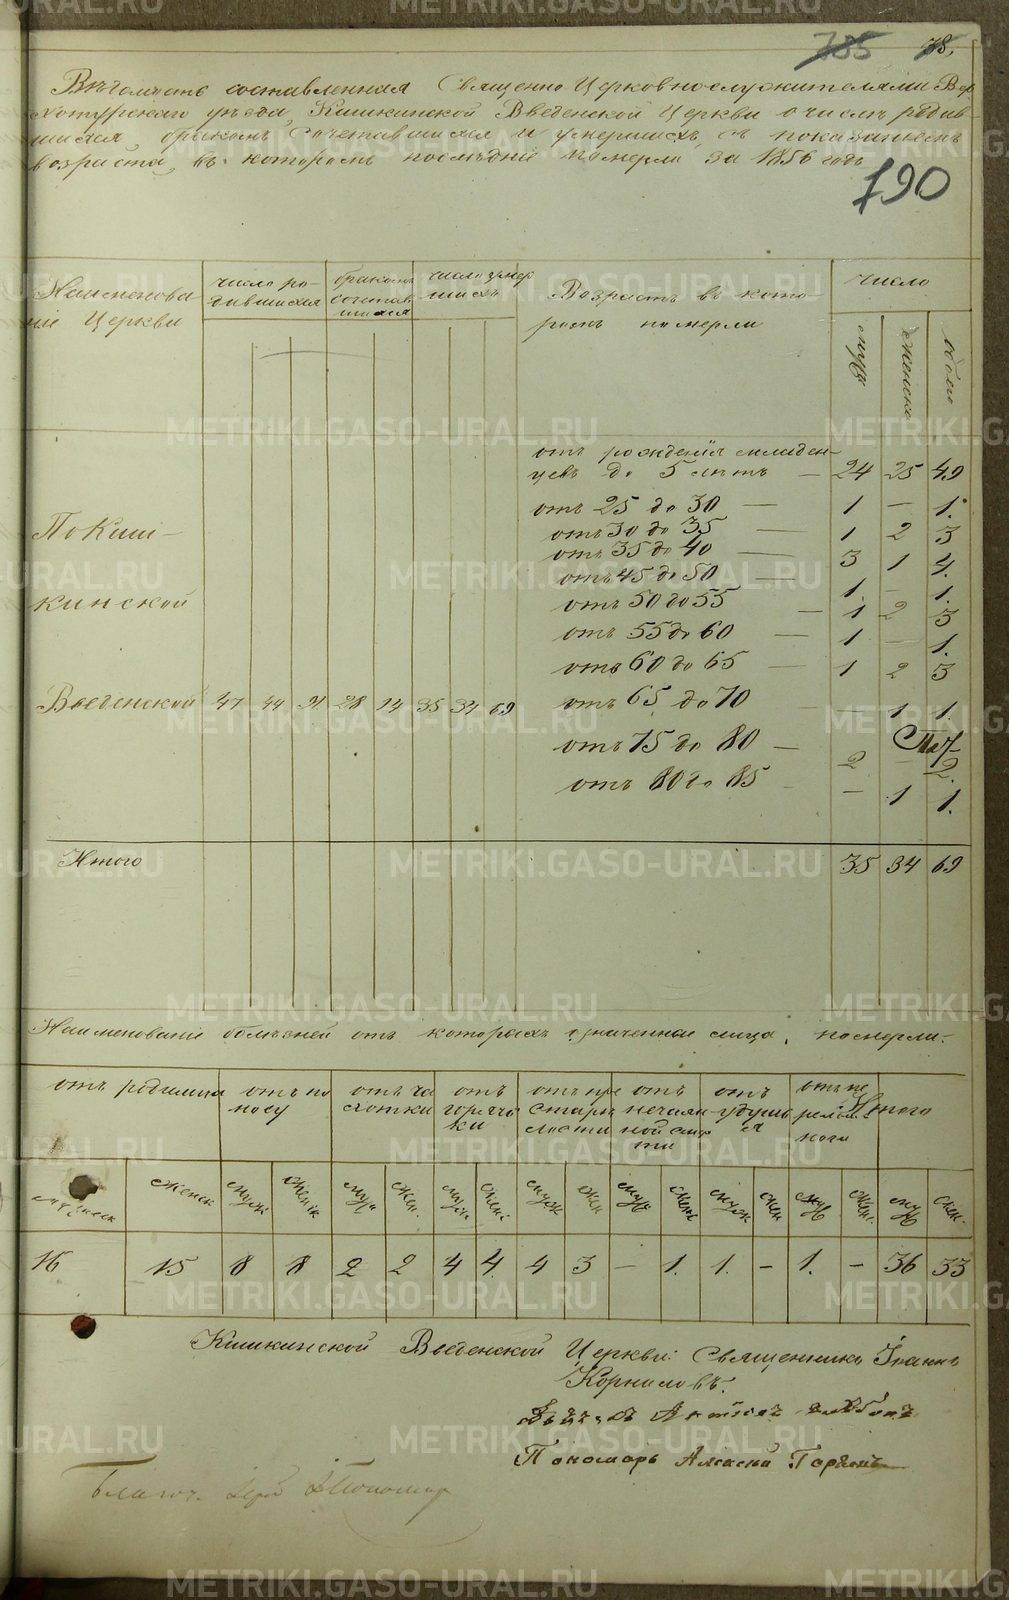 785 78.
Вѣдомость составленная Священно Церковнослужителями Вер
хотурскаго уѣзда, Кишкинской Введенской Церкви о числѣ родив
шихся бракомъ сочетавшихся и умершихъ, съ показаніемъ
возраста, въ которомъ послѣдніе померли за 1856 годъ
790
Наименова
ніе Церкви
число ро-
дившихся
бракомъ
сочетав
шихся
число умер
шихъ
Возрастъ въ кото-
ромъ померли
число
муж
женска
обоего
отъ рожденія младен-
цевъ до 5 лѣтъ — 24 25 49
отъ 25 до 30 — 1 — 1.
отъ 30 до 35 — 1 2 3
отъ 35 до 40 — 3 1 4.
отъ 45 до 50 — 1. — 1.
отъ 50 до 55 — 1 2 3
отъ 55 до 60 — 1 — 1.
отъ 60 до 65 — 1 2 3
отъ 65 до 70 — 1 1.
отъ 75 до 80 — 2 — 2.
отъ 80 до 85 — 1 1.
По Киш-
кинской
Введенской 47 44 91 28 14 35 34 69
Итого 35 34 69
Наименованіе болѣзней отъ которыхъ означенные лица, померли.
отъ родимца
отъ по
носу
отъ ча
хотки
отъ
горяч
ки
отъ пре
старѣ
лости
отъ
нечаян
ной смер
ти
отъ
удушь
я
отъ пе
релом
ноги
Итого
женск муж женск муж жен. муж женс муж жен муж женс муж жен муж жен. муж жен.
16 15 8 8 2 2 4 4. 4 3 — 1. 1. — 1. — 36 33
Кишкинской Введенской Церкви: Священникъ Іоаннъ
Корниловъ.
Пономарь
Благоч.
METRIKI.GASO-URAL.RU